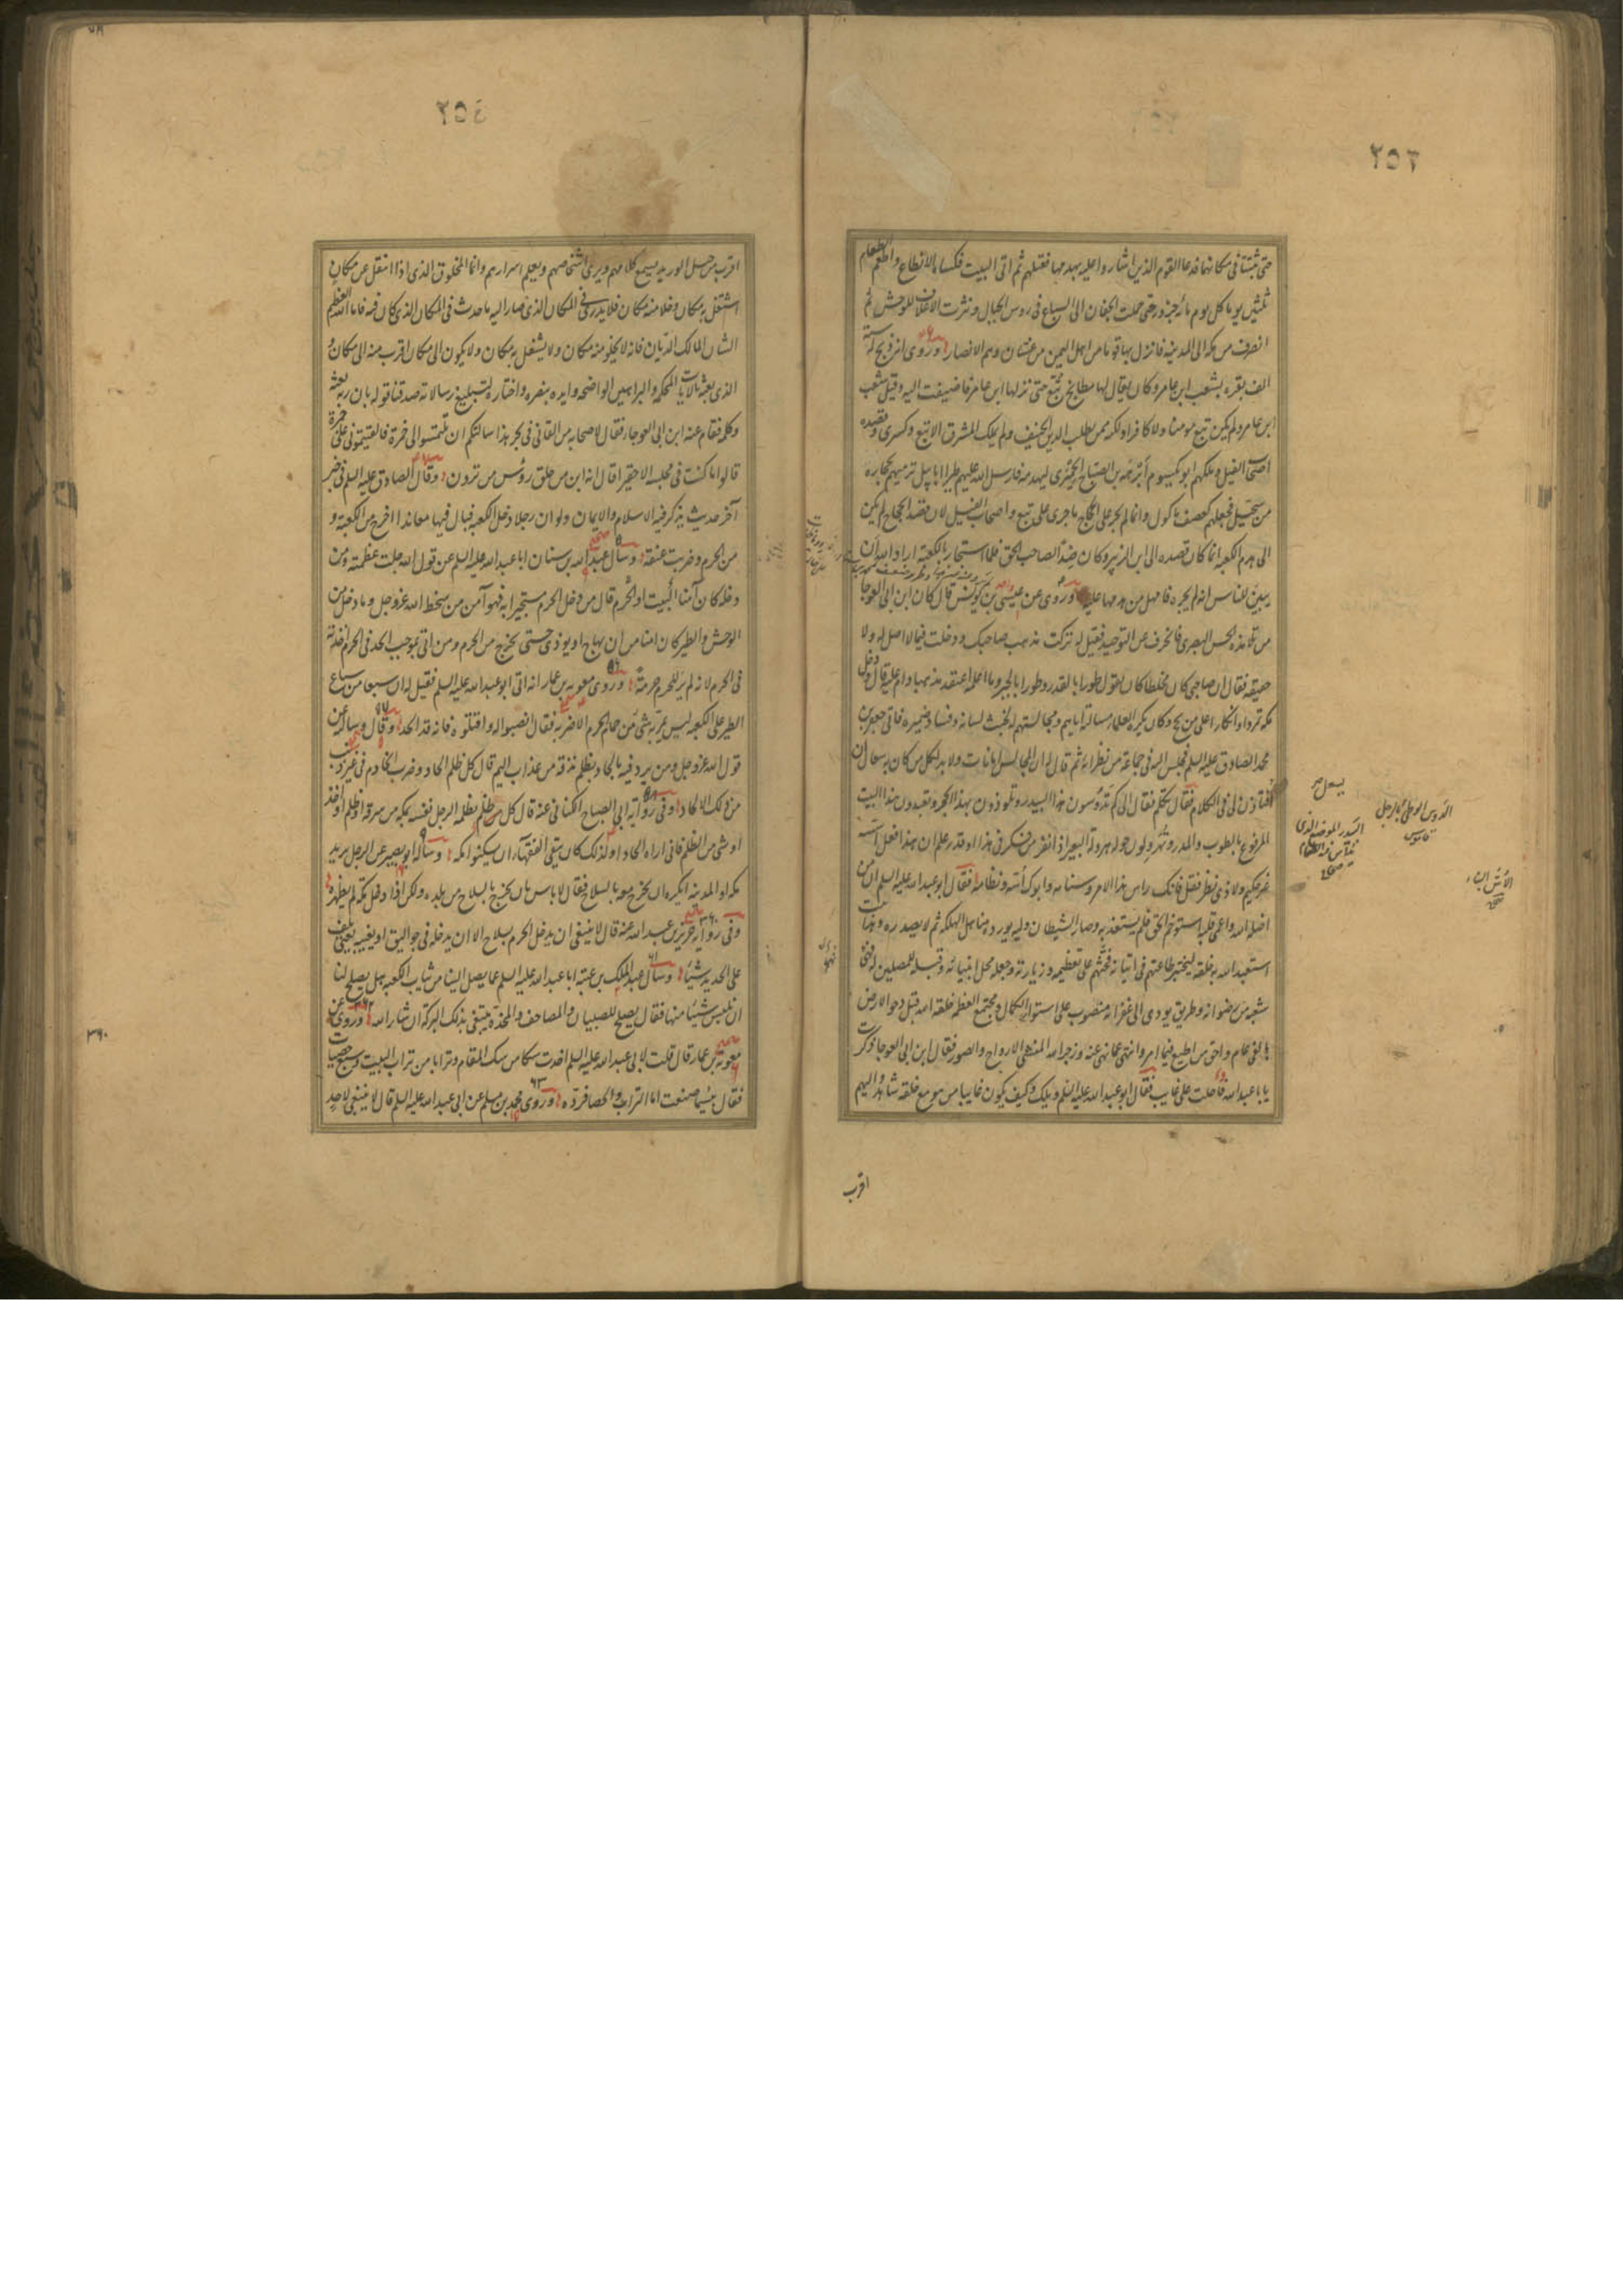 ٢٥٣
حتى ثبتتا فى مكانهما فدعا القوم الذين اشاروا عليه بهدمها فقتلهم ثم اتى البيت فكساه الانطاع واطعم الطعام
ثلثين يوما كل يوم مائة جزور حتى حملت الجفان الى السباع فى روس الجبال ونثرت الاعلاف للوحش ثم
انصرف من مكه الى المدينه فانزل بها قوما من اهل اليمن من غسان وهم الانصار وروى انه ذبح له ستة
الف بقره بشعب ابن عامر وكان يقال لها مطابخ تبع حتى نزلها ابن عامر فاضيفت اليه وقيل شعب
ابن عامر ولم يكن تبع مومنا ولا كافرا ولكنه ممن يطلب الدين الحنيف ولم يملك المشرق الا تبع وكسرى وقصده
اصحاب الفيل وملكهم ابو يكسوم أبرهة بن الصباح الحميرى ليهدمه فارسل الله عليهم طيرا ابابيل ترميهم بحجارة
من سجيل فجعلهم كعصف ماكول وانما لم يجر على الحجاج ما جرى على تبع واصحاب الفيل لان قصد الحجاج لم يكن
الى هدم الكعبه انما كان قصده الى ابن الزبير وكان ضدا لصاحب الحق فلما استجار بالكعبة اراد الله ان
يبين للناس انه لم يجره فامهل من هدمها عليه وروى عن عيسى بن يونس قال كان ابن ابى العوجا
من تلامذه الحسن البصرى فانحرف عن التوحيد فقيل له تركت مذهب صاحبك ودخلت فيما لا اصل له ولا
حقيقه فقال ان صاحبى كان مخلطا كان يقول طورا بالقدر وطورا بالجبر وما اعلمه اعتقد مذهبا دام عليه قال ودخل
مكه تمردا وانكارا على من يحج وكان يكره العلماء مسالته اياهم ومجالسته لهم لخبث لسانه وفساد ضميره فاتى جعفر بن
محمد الصادق عليه السلم فجلس اليه فى جماعة من نظرائه ثم قال له ان المجالس امانات ولا بد لكل من كان به سعال ان
يسعل
أفتاذن لى فى الكلام فقال تكلم فقال الى كم تدوسون هذا البيدر وتلوذون بهذا الحجر وتعبدون هذا البيت
المرفوع بالطوب والمدر وتهرولون حوله هرولة البعير اذا نفر من فكر فى هذا او قدر علم ان هذا فعل اسسه
غير حكيم ولا ذى نظر فقل فانك راس هذا الامر وسنامه وابوك أسه ونظامه فقال ابو عبد الله عليه السلم ان من
اضله الله واعمى قلبه استوخم الحق فلم يستعذبه وصار الشيطان وليه يورده مناهل الهلكه ثم لا يصدره وهذا بيت
استعبد الله به خلقه ليختبر طاعتهم فى اتيانه فحثهم على تعظيمه وزيارته وجعله محل انبيائه وقبلة للمصلين له فهو
شعبة من رضوانه وطريق يودى الى غفرانه منصوب على استواء الكمال ومجتمع العظمه خلقه الله قبل دحو الارض
بالفى عام واحق من اطيع فيما امر وانتهى عما نهى عنه وزجر الله المنشى الارواح والصور فقال ابن ابى العوجا ذكرت
يابا عبد الله فاحلت على غايب فقال ابو عبد الله عليه السلم ويلك وكيف يكون غايبا من هو مع خلقه شاهد واليهم
اقرب
الدوس الوطئ بالرجل
قاموس
البيدر الموضع الذى
يداس فيه الطعام
صحاح
الأس البناء
صحاح
٢٥٤
اقرب من حبل الوريد يسمع كلامهم ويرى اشخاصهم ويعلم اسرارهم وانما المخلوق الذى اذا انتقل عن مكان
اشتغل به مكان وخلا منه مكان فلا يدرى فى المكان الذى صار اليه ما حدث فى المكان الذى كان فيه فاما الله العظيم
الشان الملك الديان فانه لا يخلو منه مكان ولا يشتغل به مكان ولا يكون الى مكان اقرب منه الى مكان و
الذى بعثه بالايات المحكمه والبراهين الواضحه وايده بنصره واختاره لتبليغ رسالاته صدقنا قوله بان ربه بعثه
وكلمه فقام عنه ابن ابى العوجا فقال لاصحابه من القانى فى بحر هذا سالتكم ان تلتمسوا لى خمرة فالقيتمونى على جمرة
قالوا ما كنت فى مجلسه الا حقيرا قال انه ابن من حلق رؤس من ترون وقال الصادق عليه السلم فى خبر
آخر حديث يذكر فيه الاسلام والايمان ولو ان رجلا دخل الكعبه فبال فيها معاندا اخرج من الكعبة و
من الحرم وضربت عنقه وسأل عبد الله بن سنان ابا عبد الله عليه السلم عن قول الله جلت عظمته ومن
دخله كان آمنا البيت او الحرم قال من دخل الحرم مستجيرا به فهو آمن من سخط الله عز وجل وما دخل من
الوحش والطير كان امنا من ان يهاج او يوذى حتى يخرج من الحرم ومن اتى بموجب الحد فى الحرم اخذ به
فى الحرم لانه لم ير للحرم حرمة وروى معويه بن عمار انه اتى ابو عبد الله عليه السلم فقيل له ان سبعا من سباع
الطير على الكعبه ليس يمر به شئ من حمام الحرم الا ضربه فقال انصبوا له واقتلوه فانه قد الحد وقال وساله عن
قول الله عز وجل ومن يرد فيه بالحاد بظلم نذقه من عذاب اليم قال كل ظلم الحاد وضرب الخادم فى غير ذنب
من ذلك الالحاد وفى رواية ابى الصباح الكنانى عنه قال كل ظلم يظلمه الرجل نفسه بمكه من سرقه او ظلم احد
او شئ من الظلم فانى اراه الحادا ولذلك كان يتقى الفقهاء ان يسكنوا مكه وساله ابو بصير عن الرجل يريد
مكه او المدينه ايكره ان يخرج معه بالسلاح فقال لا باس بان يخرج بالسلاح من بلده ولكن اذا دخل مكة لم يظهره
وفى رواية حريز بن عبد الله عنه قال لا ينبغى ان يدخل الحرم بسلاح الا ان يدخله فى جواليق او يغيبه يعنى يلف
على الحديد شيئا وسأل عبد الملك بن عتبه ابا عبد الله عليه السلم عما يصل الينا من ثياب الكعبه هل يصلح لنا
ان نلبس شيئا منها فقال يصلح للصبيان والمصاحف والمخدة يبتغى بذلك البركة ان شاء الله وروى عن
معوية بن عمار قال قلت لابى عبد الله عليه السلم اخذت سكا من سك المقام وترابا من تراب البيت وسبع حصيات
فقال بئسما صنعت اما التراب والحصا فرده وروى محمد بن مسلم عن ابى عبد الله عليه السلم قال لا ينبغى لاحد
٣٦٠